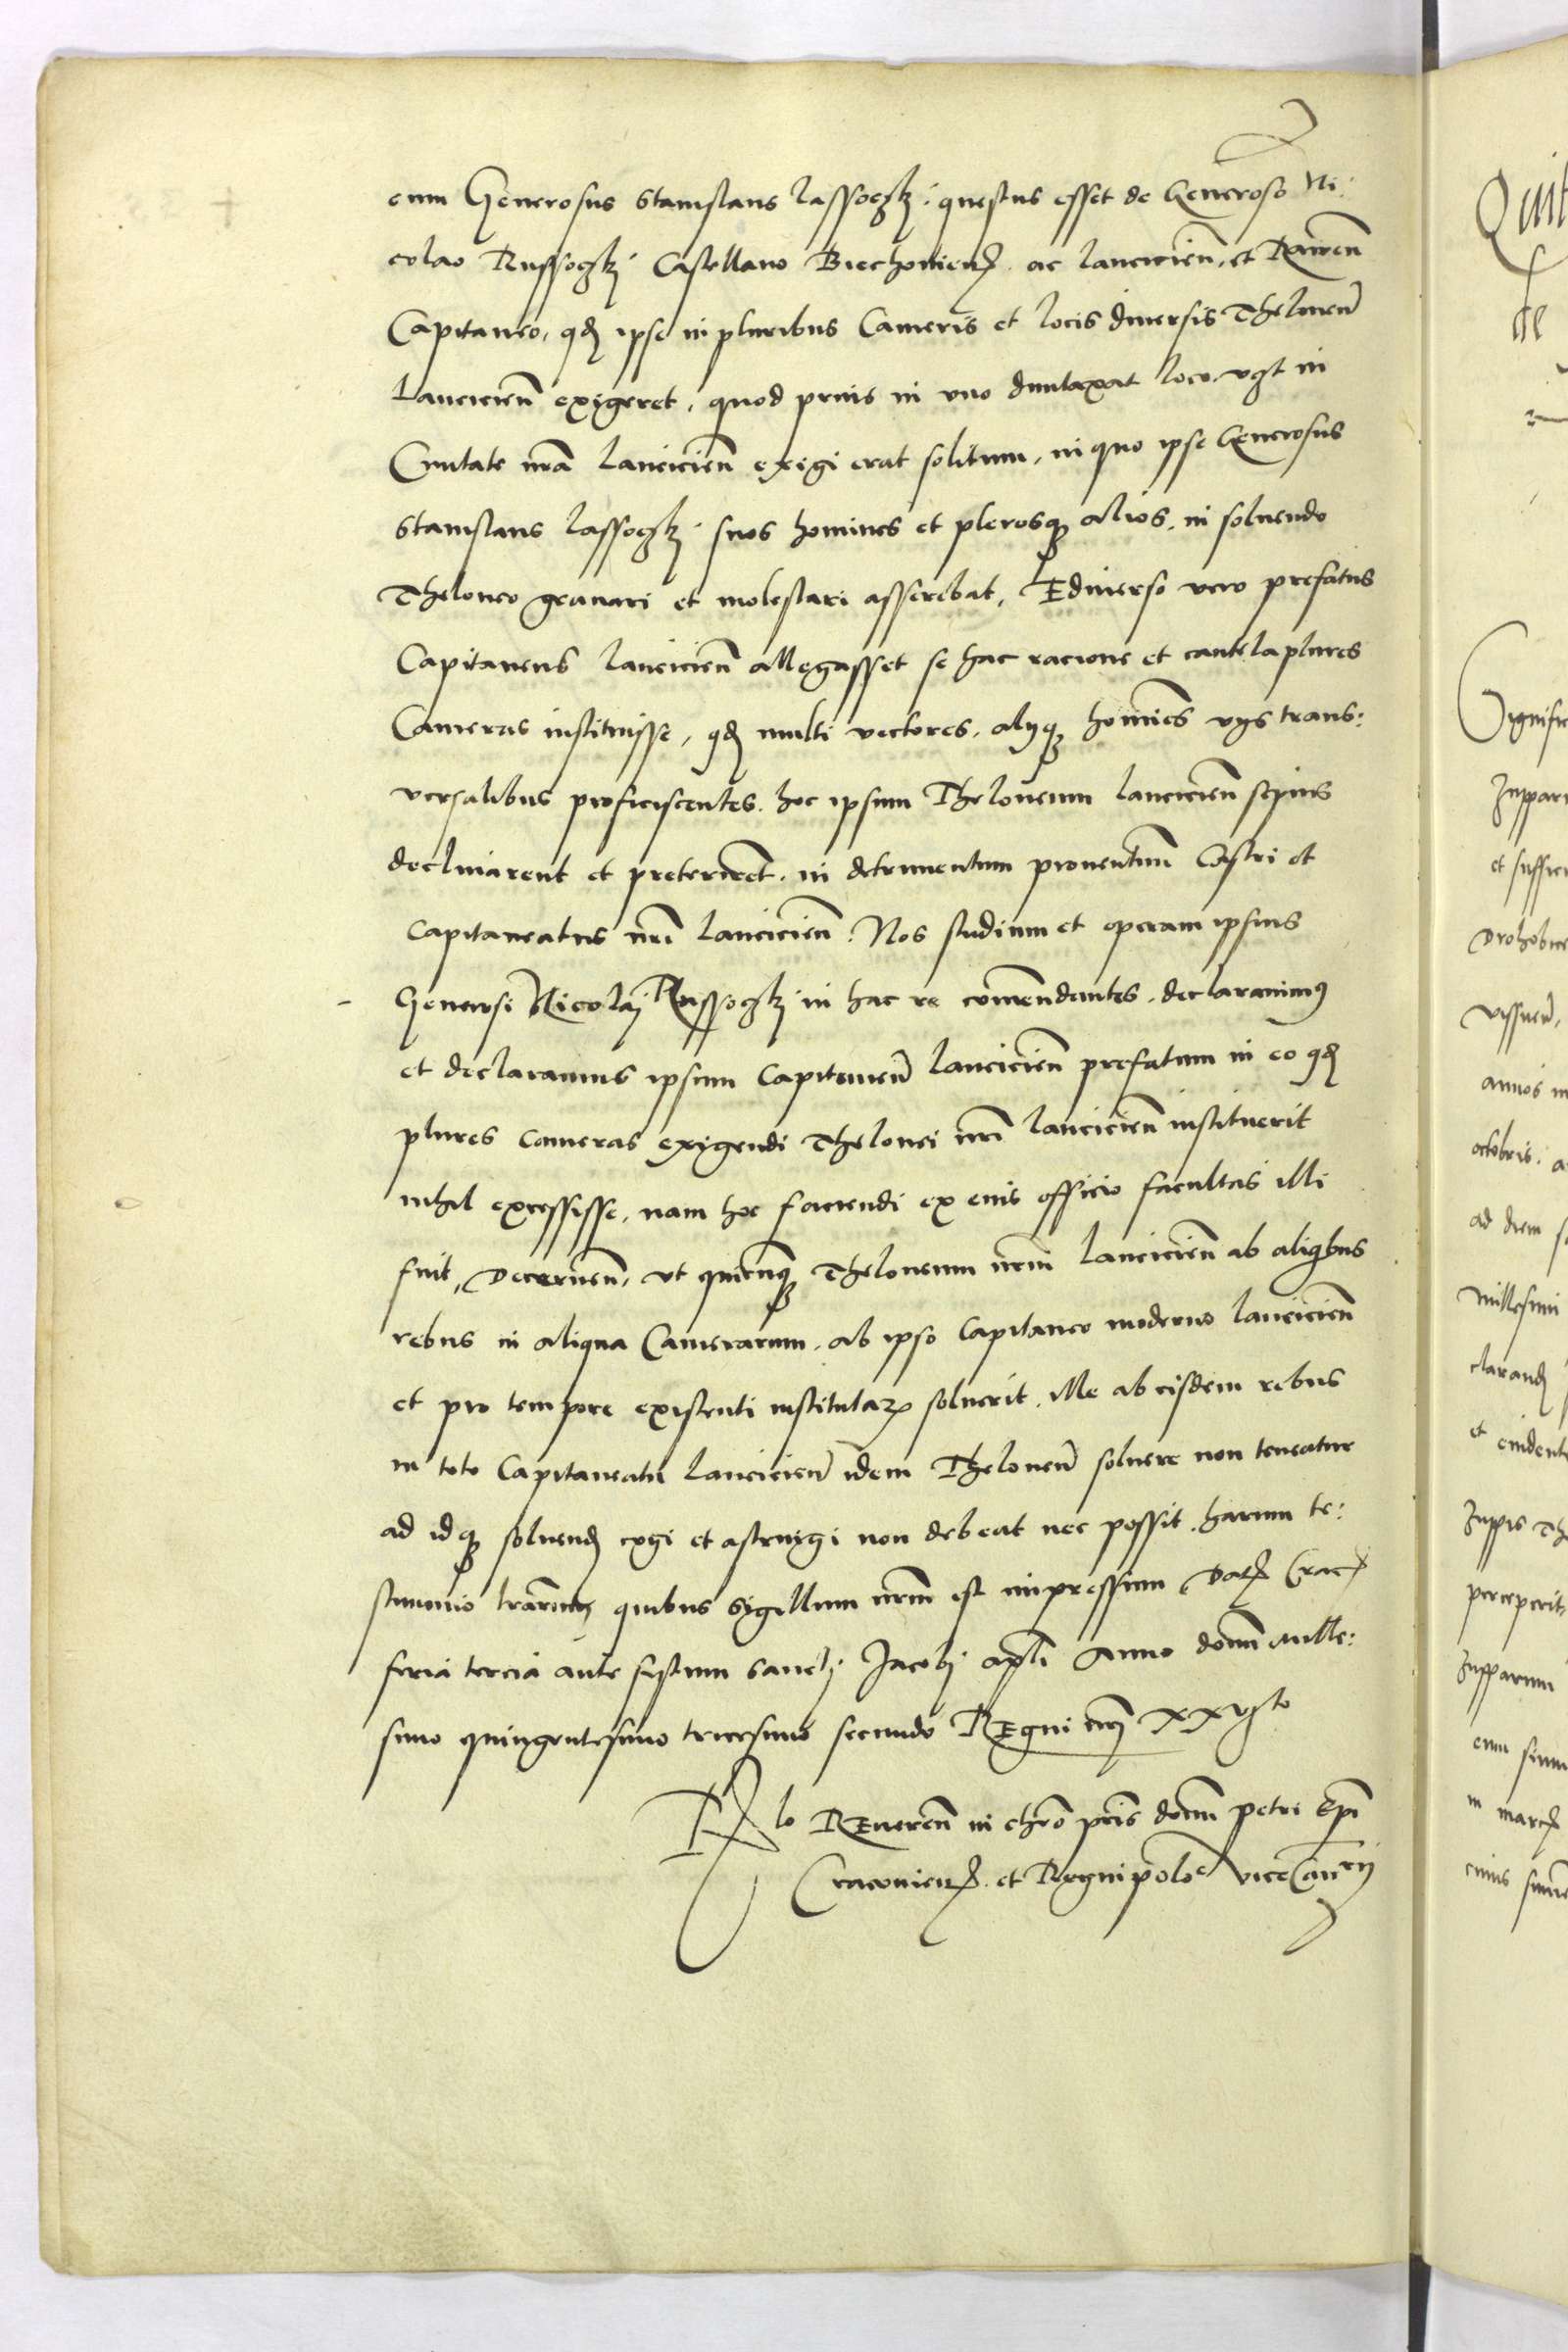 cum Generosus Stanislaus Lassoczkj questus esset de Generoso Ni:
colao Russoczkj Castellano Biechoviens. ac lancicien̄. et Rawen̄
Capitaneo, qd ipse in pluribus Cameris et locis diversis Theloneū
lancicien̄ exigeret, quod prius in uno duntaxat loco vz̄t in
Civitate n̄ra lancicien̄ exigi erat solitum, in quo ipse Generosus
Stanislaus lassoczkj suos homines et plerosq̨ alios, in solvendo
Theloneo gravari et molestari asserebat, Ediverso vero prefatus
Capitaneus lancicien̄ allegasset se hac racione et cautela plures
Cameras instituisse, qd multi vectores, alijq̨ homīes vijs trans:
versalibus proficiscentes, hoc ipsum Theloneum lancicien̄ sepius
declinarent et preterirēt, in detrimentum proventuum Castri et
Capitaneatus n̄ri lancicien̄: Nos studium et operam ipsius
Generosi Nicolaj Russoczkj in hac re com̄endantes, declaravimꝰ
et declaramus ipsum Capitaneū lancicien̄ prefatum in eo qd
plures cameras exigendi Thelonei n̄ri lancicien̄ instituerit
nihil excessisse, nam hoc faciendi ex eius officio facultas illi
fuit, Decernen̄, ut quicunq̨ Theloneum n̄rm lancicien̄ ab aliqbus
rebus in aliqua Camerarum, ab ipso Capitaneo moderno lancicien̄
et pro tempore existenti institutaꝝ solverit, ille ab eisdem rebus
in toto Capitaneatu lancicien̄ idem Theloneū solvere non teneatur
ad idq̨ solvend cogi et astringi non debeat nec possit, harum te:
stimonio l̄rarum, quibus sigillum n̄rm est impressum Dat Crac
feria tercia ante festum Sanctj Jacobj ap̄li Anno dom̄ mille:
simo quingentesimo tricesimo secundo Regni n̄rj XXVJto
Rlo Reveren̄ in chr̄o pr̄is dom̄ petri Ep̄i
Cracoviens. et Regni polōe viceCan̄rij